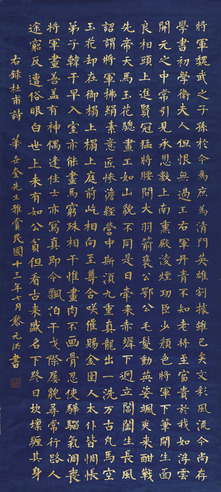 將軍魏武之子孫於今為庶為清門英雄割據雖已矣文彩風流今尚存
學書初學衛夫人但恨無過王右軍丹青不知老將至富貴於我如浮雲
開元之中常引見承恩數上南薰殿凌煙功臣少顏色將軍下筆開生面
良相頭上進賢冠猛將腰間大羽箭褒公鄂公毛髮動英姿颯爽來酣戰
先帝天馬玉花驄畫工如山貌不同是日牽來赤墀下迥立閶闔生長風
詔謂將軍拂絹素意匠慘澹經營中斯須九重真龍出一洗萬古凡馬空
玉花却在御榻上榻上庭前屹相向至尊含笑催賜金圉人太仆皆惆悵
弟子韓干早入室亦能畫馬窮殊相干惟畫肉不畫骨忍使驊騮氣凋喪
將軍畫善蓋有神偶逢佳士亦寫真即今飄泊干戈際屢貌尋常行路人
途窮反遭俗眼白世上未有如公貧但看古來盛名下終日坎壈纏其身
右錄杜甫詩 華世奎先生雅賞民國十三年七月蔡元培書